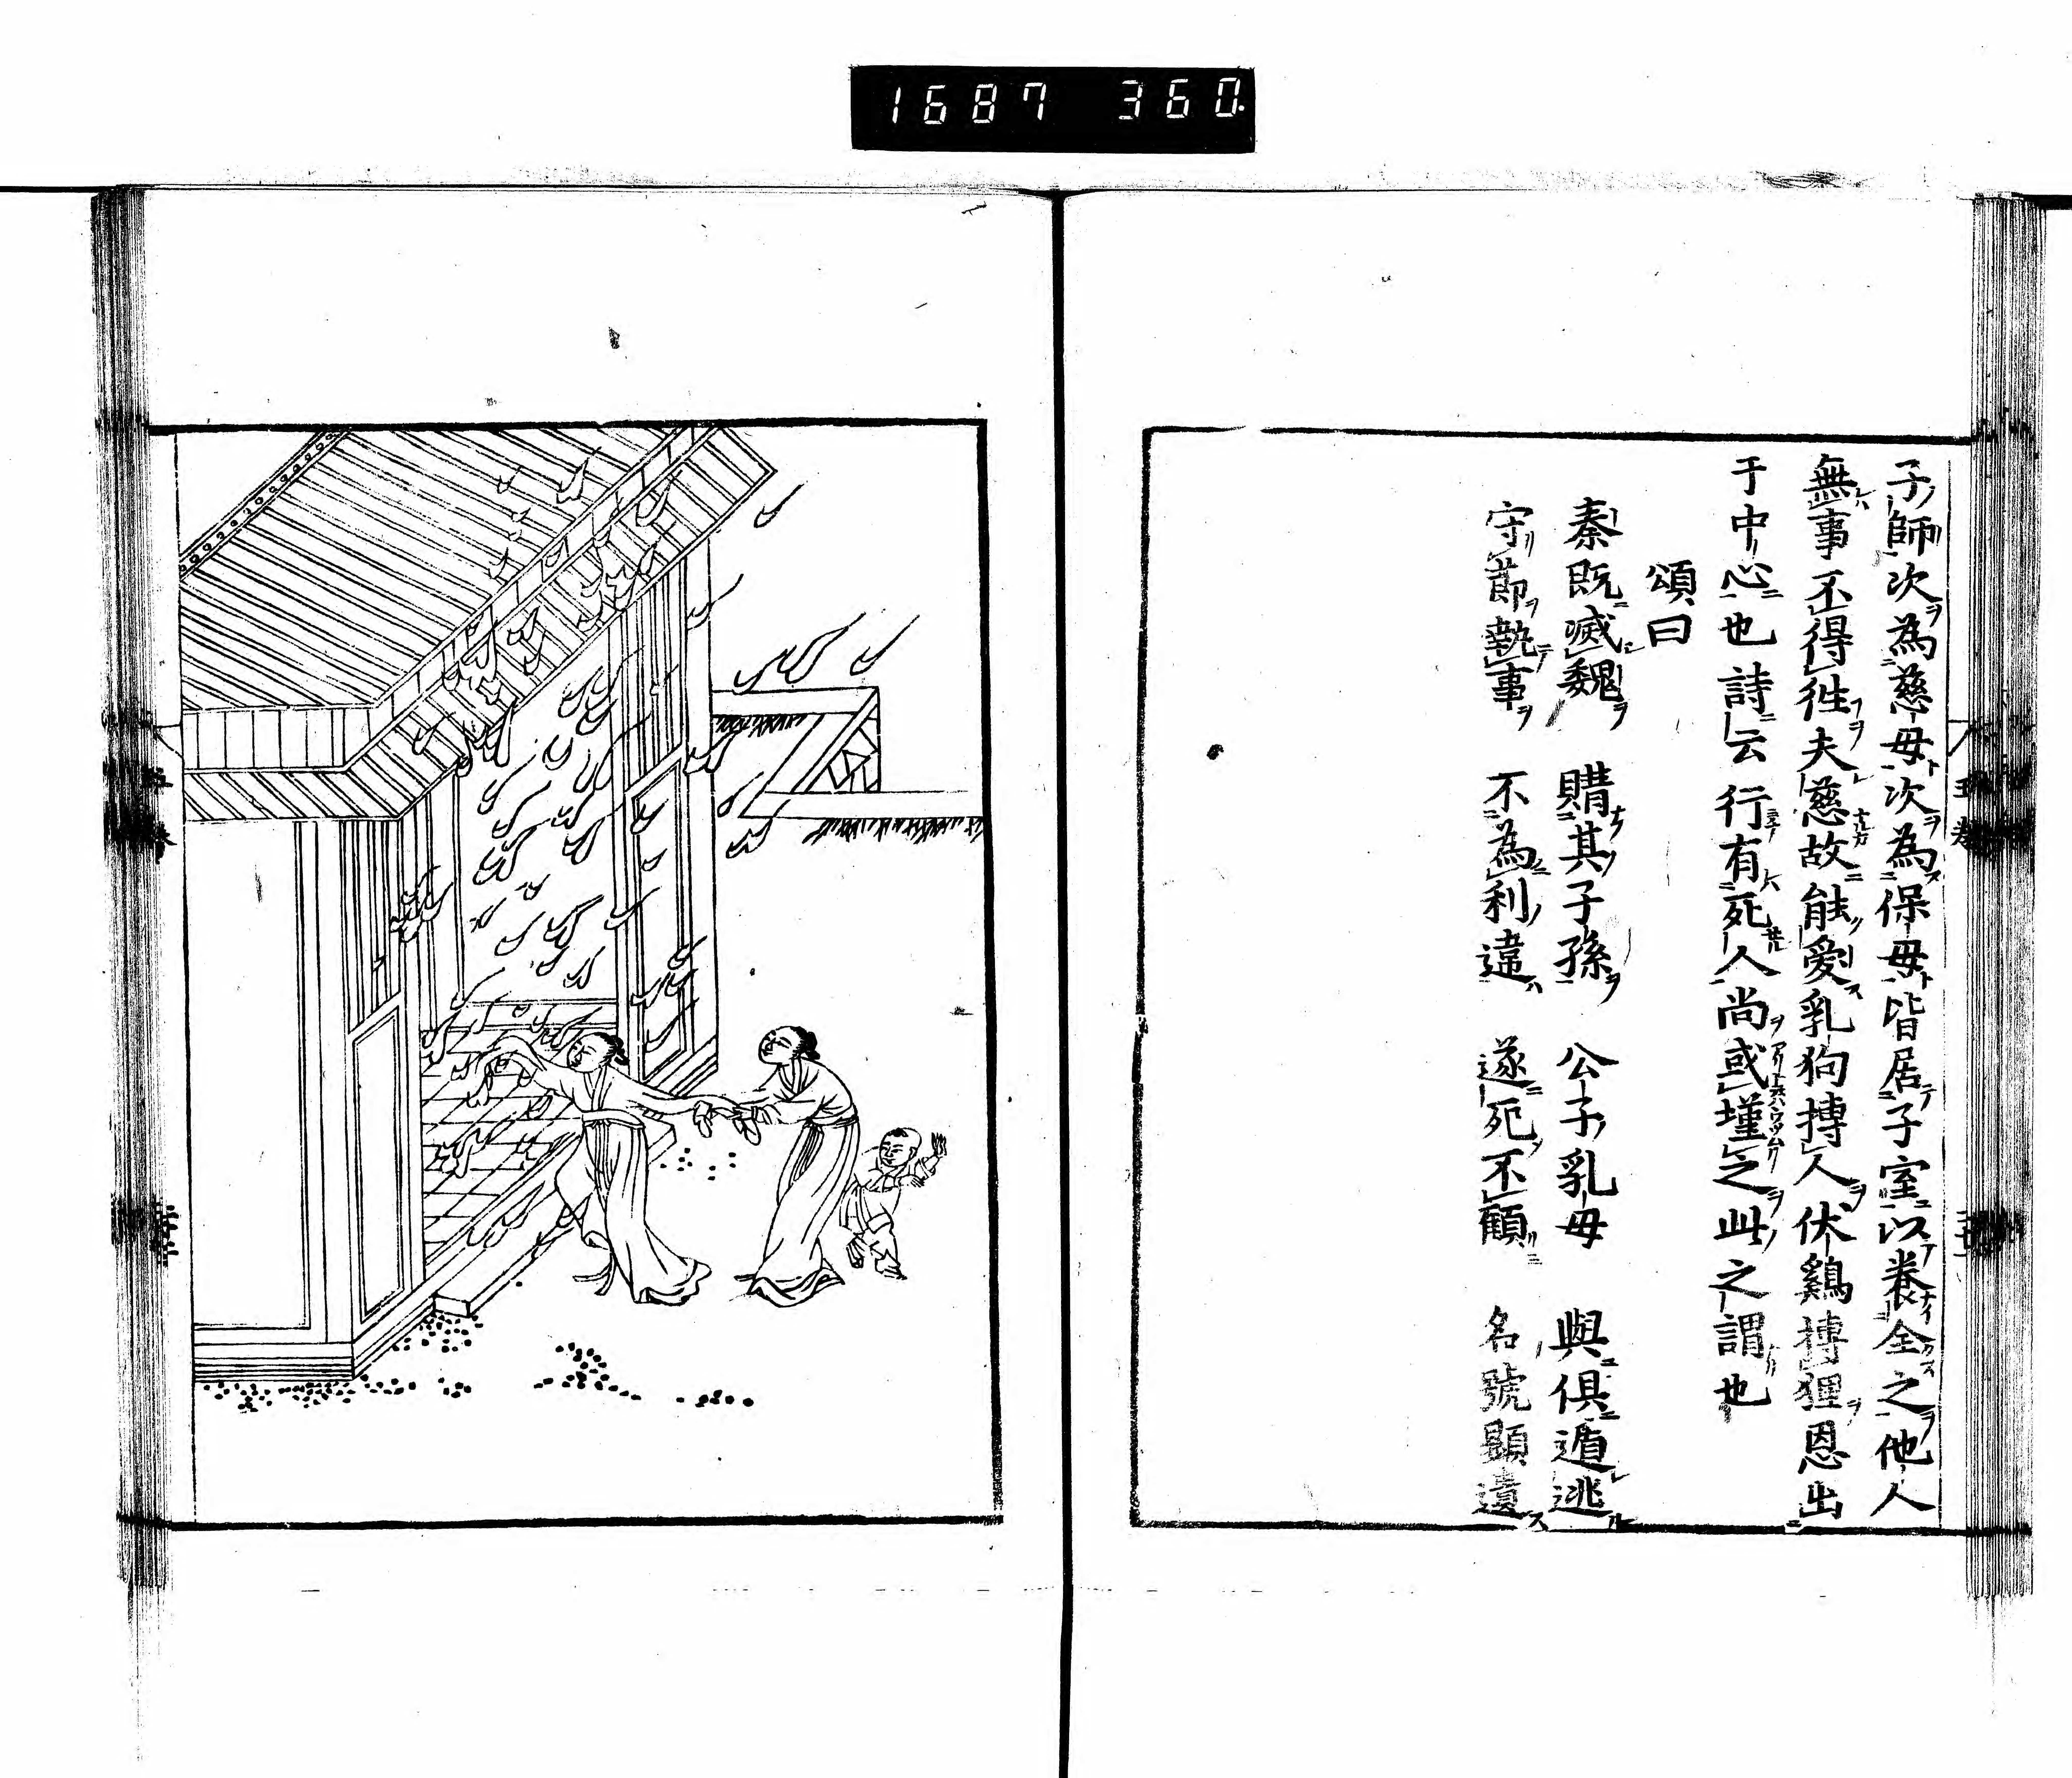 1687 360
子師次為慈母次為保母皆居子室以養全之他人
無事不得徃夫慈故能愛乳狗搏人伏鷄搏狸恩出
于中心也詩云行有死人尚或墐之此之謂也
頌曰
秦既滅魏 購其子孫 公子乳母 與俱遁逃
守節執事 不為利違 遂死不顧 名號顯遺